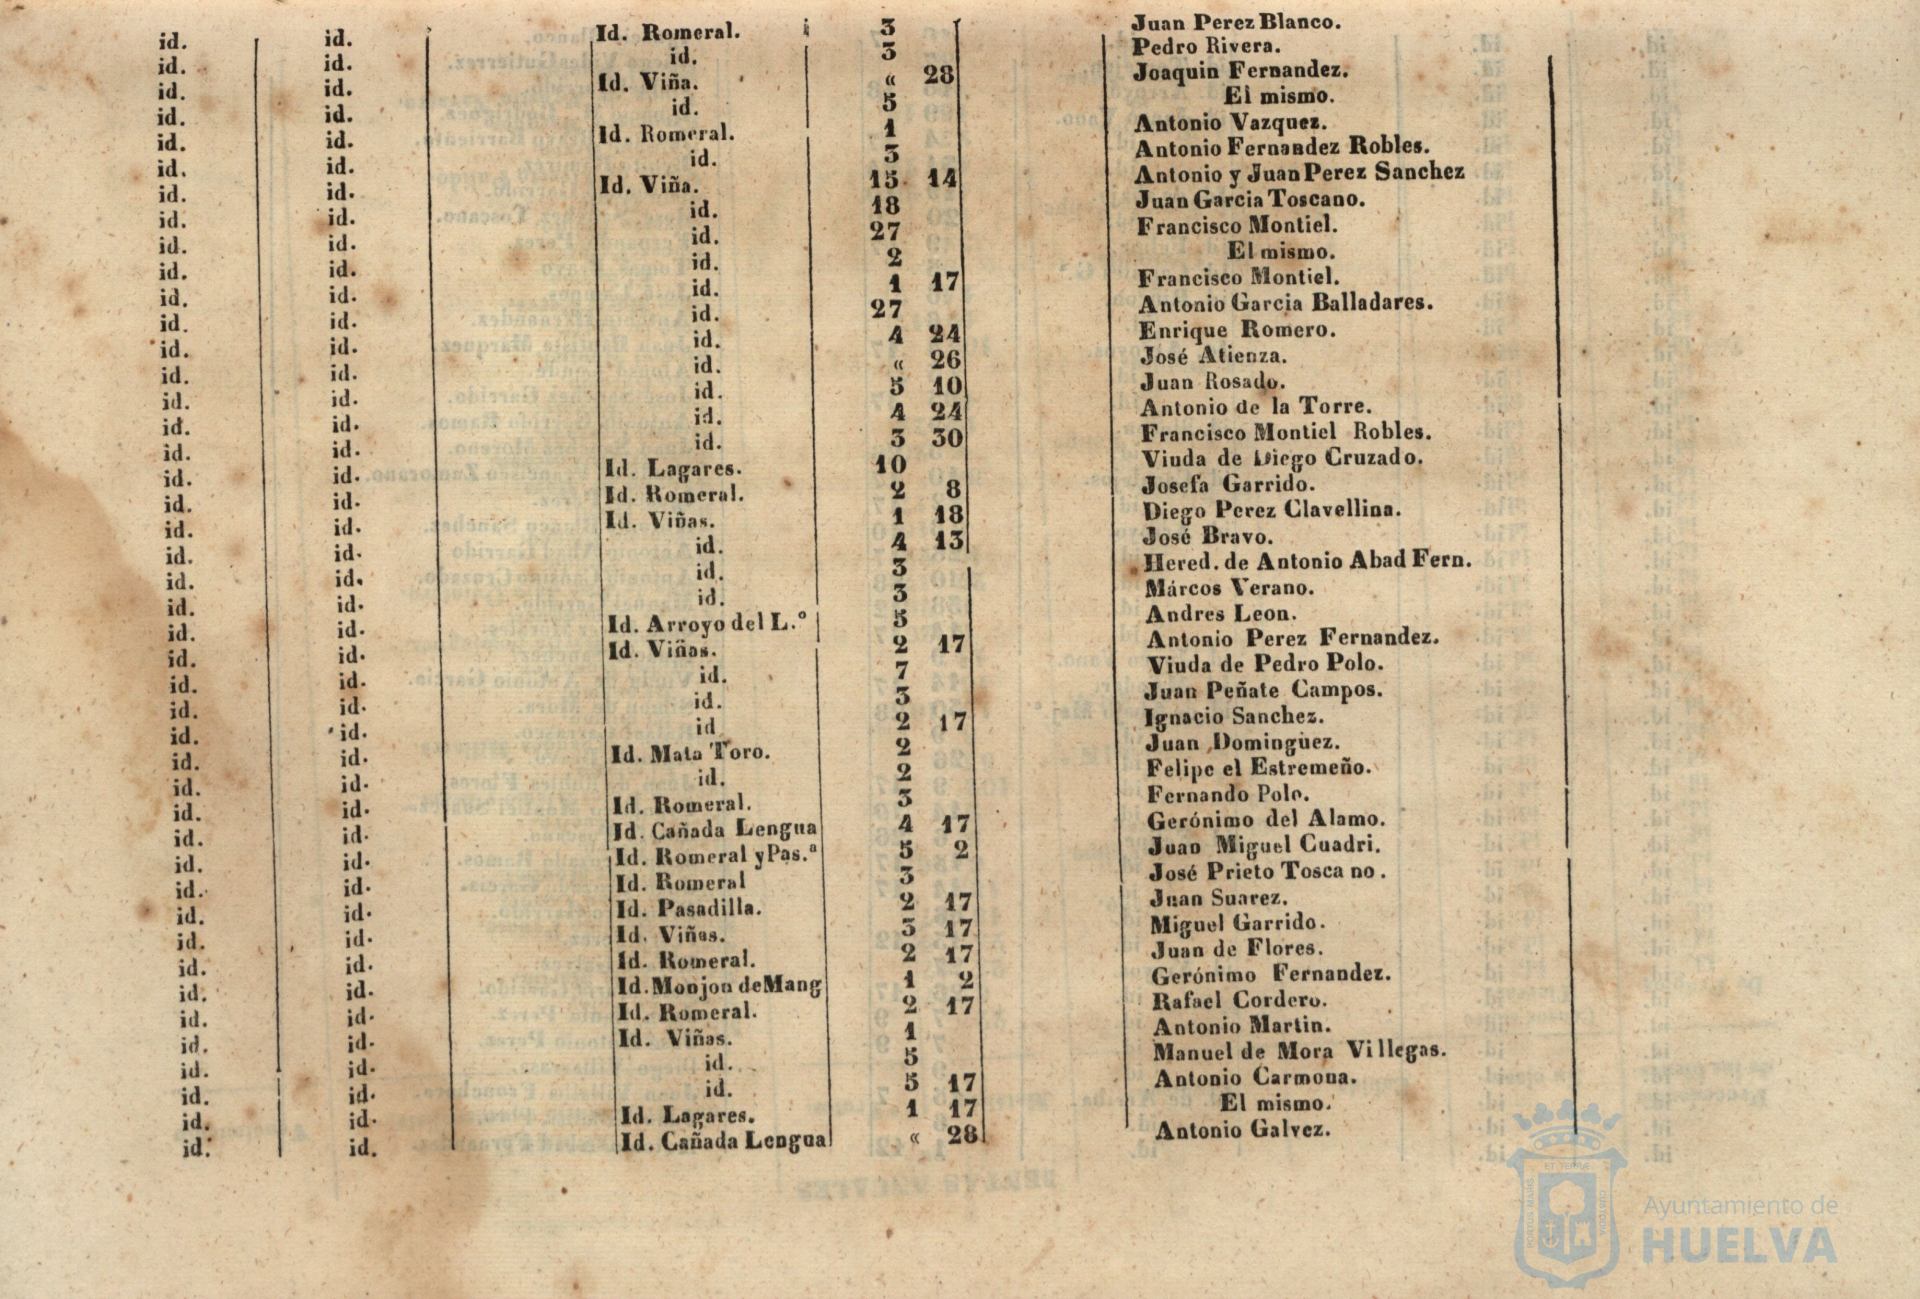 id. id. Id. Romeral. 3 Juan Perez Blanco.
id. id. id. 3 Pedro Rivera.
id. id. Id. Viña. « 28 Joaquin Fernandez.
id. id. id. 5 El mismo.
id. id. Id. Romeral. 1 Antonio Vazquez.
id. id. id. 3 Antonio Fernandez Robles.
id. id. Id. Viña. 15 14 Antonio y Juan Perez Sanchez
id. id. id. 18 Juan Garcia Toscano.
id. id. id. 27 Francisco Montiel.
id. id. id. 2 El mismo.
id. id. id. 1 17 Francisco Montiel.
id. id. id. 27 Antonio Garcia Balladares.
id. id. id. 4 24 Enrique Romero.
id. id. id. « 26 José Atienza.
id. id. id. 5 10 Juan Rosado.
id. id. id. 4 24 Antonio de la Torre.
id. id. id. 3 30 Francisco Montiel Robles.
id. id. Id. Lagares. 10 Viuda de Diego Cruzado.
id. id. Id. Romeral. 2 8 Josefa Garrido.
id. id. Id. Viñas. 1 18 Diego Perez Clavellina.
id. id. id. 4 13 José Bravo.
id. id. id. 3 Hered. de Antonio Abad Fern.
id. id. id. 3 Márcos Verano.
id. id. Id. Arroyo del L.º 5 Andres Leon.
id. id. Id. Viñas. 2 17 Antonio Perez Fernandez.
id. id. id. 7 Viuda de Pedro Polo.
id. id. id. 3 Juan Peñate Campos.
id. id. id 2 17 Ignacio Sanchez.
id. id. Id. Mata Toro. 2 Juan Dominguez.
id. id. id. 2 Felipe el Estremeño.
id. id. Id. Romeral. 3 Fernando Polo.
id. id. Id. Cañada Lengua 4 17 Gerónimo del Alamo.
id. id. Id. Romeral y Pas.ª 5 2 Juan Miguel Cuadri.
id. id. Id. Romeral 3 José Prieto Toscano.
id. id. Id. Pasadilla. 2 17 Juan Suarez.
id. id. Id. Viñas. 3 17 Miguel Garrido.
id. id. Id. Romeral. 2 17 Juan de Flores.
id. id. Id. Monjon de Mang 1 2 Gerónimo Fernandez.
id. id. Id. Romeral. 2 17 Rafael Cordero.
id. id. Id. Viñas. 1 Antonio Martin.
id. id. id. 5 Manuel de Mora Villegas.
id. id. id. 5 17 Antonio Carmona.
id. id. Id. Lagares. 1 17 El mismo.
id. id. Id. Cañada Lengua « 28 Antonio Galvez.
Ayuntamiento de
HUELVA